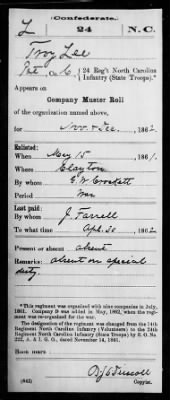 Confederate.
L 24 N.C.
Troy Lee
Pvt, Co. C, 24 Reg't North Carolina
Infantry (State Troops).*
Appears on
Company Muster Roll
of the organization named above,
for Nov & Dec, 1862
Enlisted:
When May 15, 1861.
Where Clayton
By whom
Period War
Last paid:
By whom J. Farrell
To what time Apl. 30, 1862
Present or absent absent
Remarks: absent on special
duty.
*This regiment was organized with nine companies in July,
1861. Company D was added in May, 1862, when the regi-
ment was re-organized for the war.
The designation of the regiment was changed from the 14th
Regiment North Carolina Infantry (Volunteers) to the 24th
Regiment North Carolina Infantry (State Troops) by S. O. No.
222, A. & I. G. O., dated November 14, 1861.
Book mark:
(642)
Copyist.